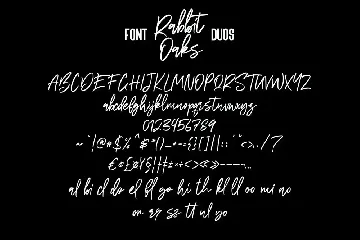 FONT Rabbit Oaks DUOS
ABCDEFGHIJKLMNOPQRSTUVWXYZ
abcdefghijklmnopqrstuvwxyz
0123456789
al bi cl do el fl go hi th kl ll oo mi no
on ar sz tt ul yo